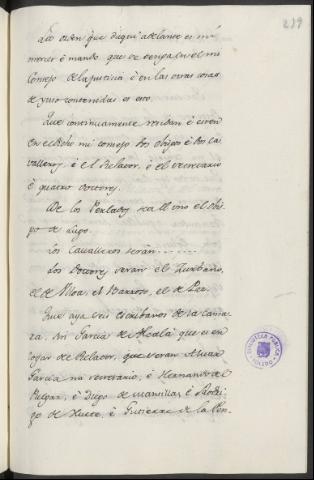 239
La orden que daqui adelante es mi
merced é mando, que se tenga en el mi
Consejo de la justicia é en las otras cosas
de yuso contenidas es esto.
Que continuamente residan é esten
en el dicho mi consejo dos obispos é dos ca
valleros, é el Relator, é el secretario
é quatro Doctores.
De los Perlados sea el uno el obis
po de Lugo.
Los Cavalleros serán
Los Doctores seran el Zurbano,
el de Ulloa, el Barroso, el de Paz.
Que aya seis escribanos de la cama
ra, sin Garcia de Alcalá que es en
logar de Relator, que seran Alvar
Garcia mi secretario, é Hernando del
Pulgar, é Diego de mansilla, é Rodri
go de Huete, é Gutierre de la Con-
BIBLIOTECA PUBLICA
TOLEDO